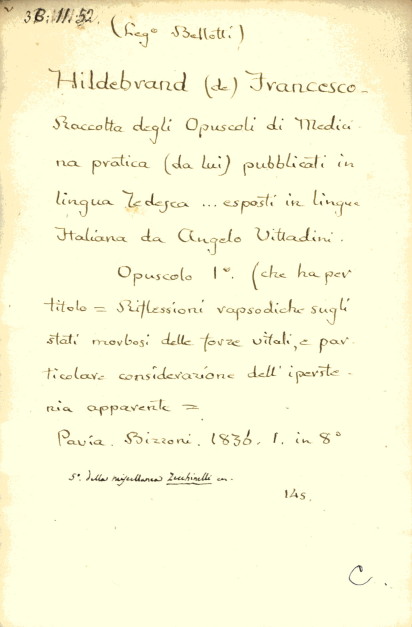 3B:11:52.
(Lego Bellotti)
Hildebrand (de) Francesco -
Raccolta degli Opuscoli di Medici-
na pratica (da lui) pubblicati in
lingua Tedesca ... esposti in lingua
Italiana da Angelo Vittadini.
Opuscolo 1º. (che ha per
titolo = Riflessioni rapsodiche sugli
stati morbosi delle forze vitali, e par-
ticolare considerazione dell'iperste-
nia apparente =
Pavia. Bizzoni. 1836. 1. in 8º
5º. della miscellanea Zecchinelli
145.
C.